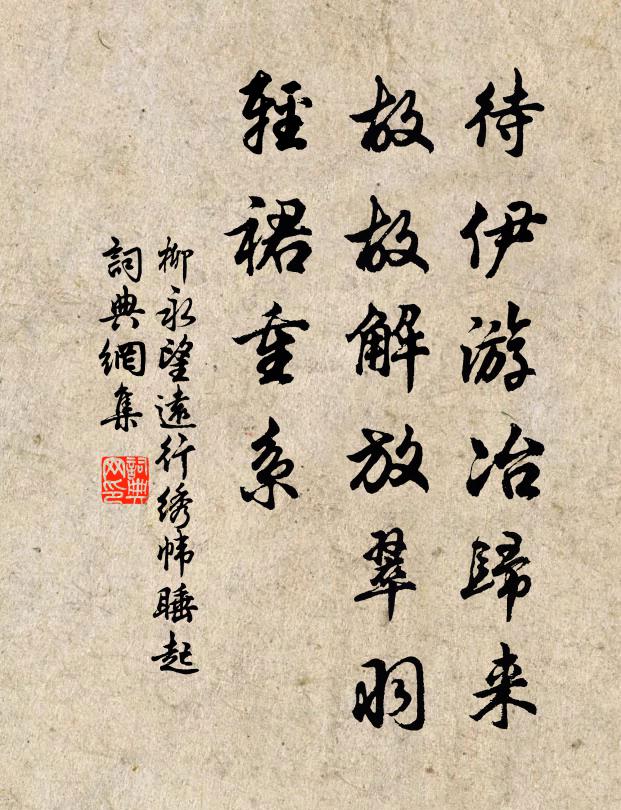 待伊游冶歸来
故故解放翠羽
輕裙重系
柳永望遠行綉幃睡起
詞典網集
詞典网印